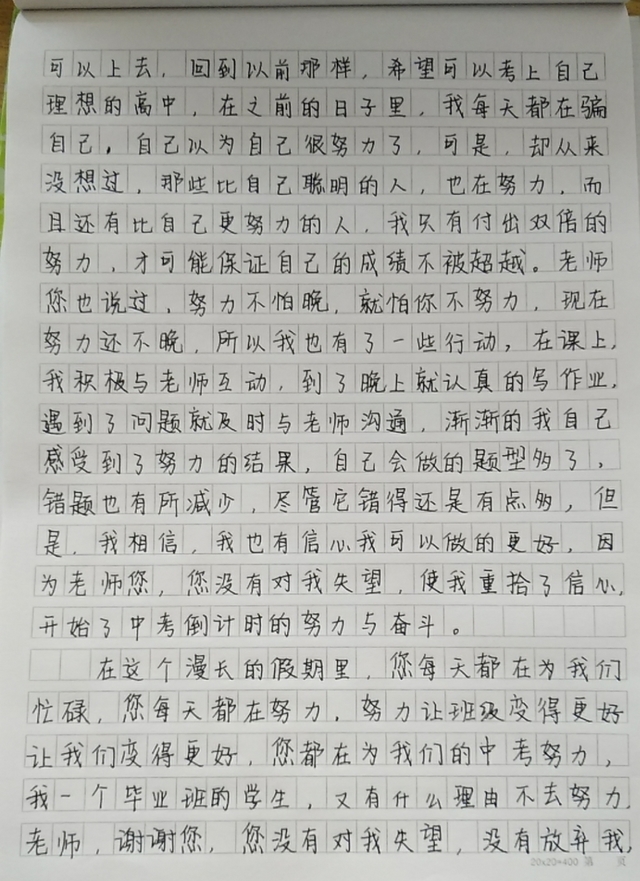 可以上去，回到以前那样，希望可以考上自己
理想的高中，在之前的日子里，我每天都在骗
自己，自己以为自己很努力了，可是，却从来
没想过，那些比自己聪明的人，也在努力，而
且还有比自己更努力的人，我只有付出双倍的
努力，才可能保证自己的成绩不被超越。老师
您也说过，努力不怕晚，就怕你不努力，现在
努力还不晚，所以我也有了一些行动，在课上，
我积极与老师互动，到了晚上就认真的写作业，
遇到了问题就及时与老师沟通，渐渐的我自己
感受到了努力的结果，自己会做的题型多了，
错题也有所减少，尽管它错得还是有点多，但
是，我相信，我也有信心我可以做的更好，因
为老师您，您没有对我失望，使我重拾了信心，
开始了中考倒计时的努力与奋斗。
在这个漫长的假期里，您每天都在为我们
忙碌，您每天都在努力，努力让班级变得更好
让我们变得更好，您都在为我们的中考努力，
我一个毕业班的学生，又有什么理由不去努力，
老师，谢谢您，您没有对我失望，没有放弃我，
20×20=400 第 页